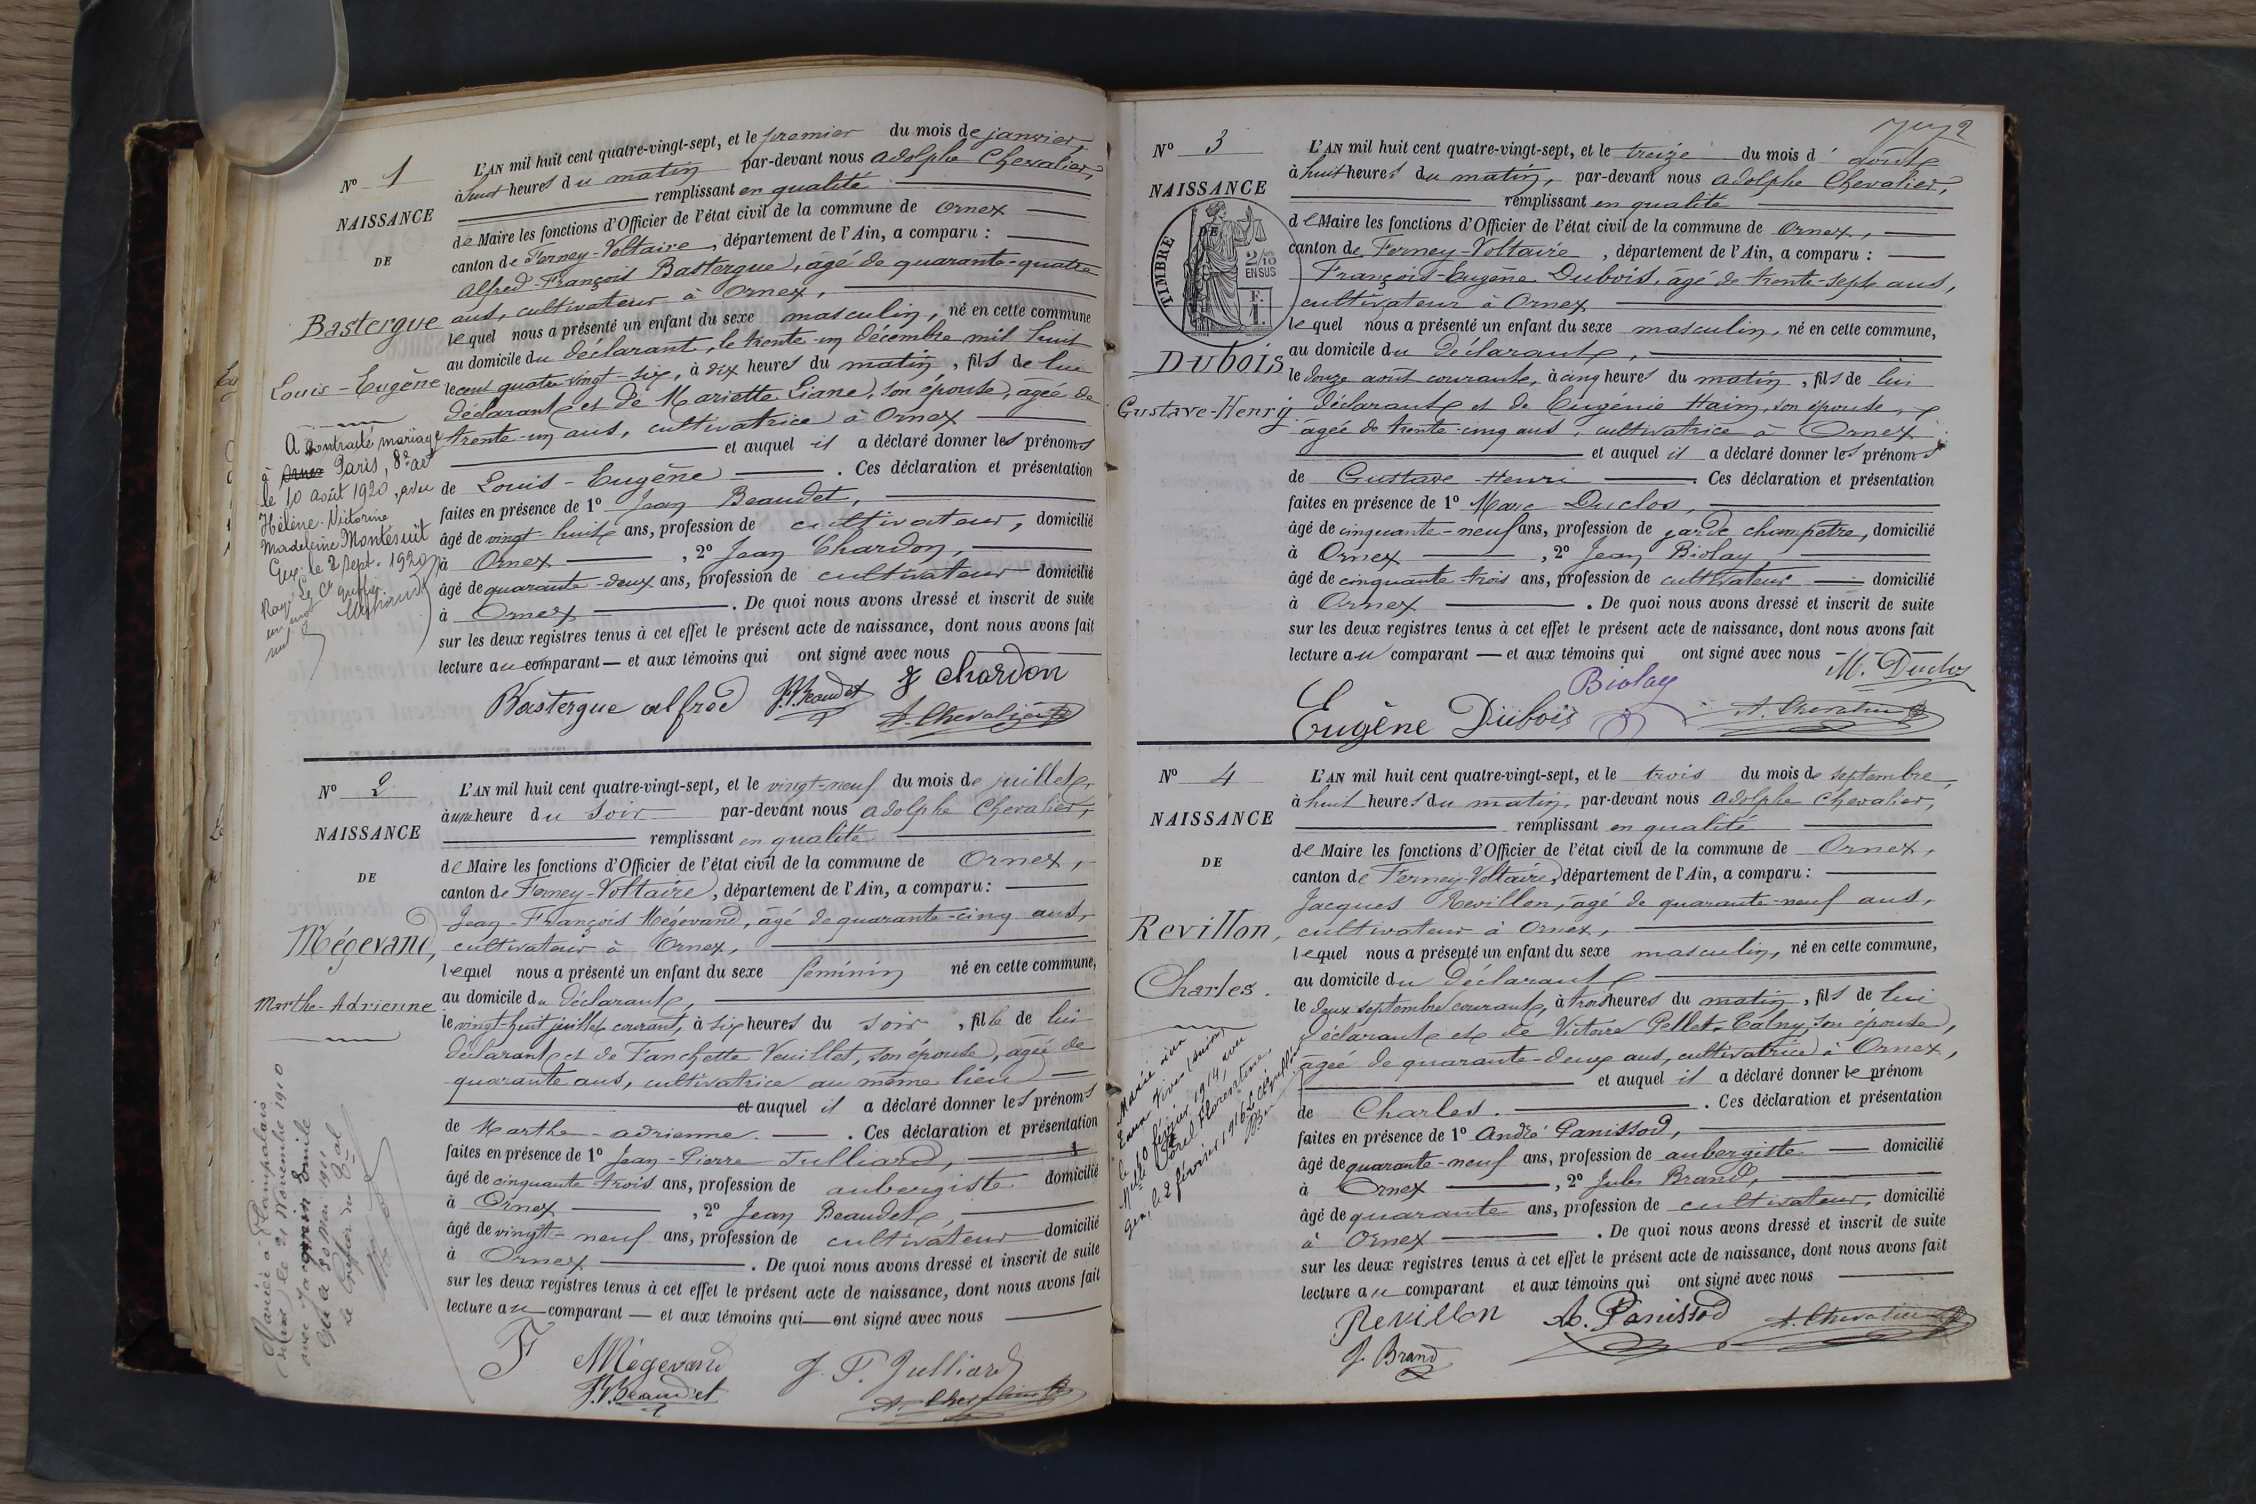 N° 1
NAISSANCE
DE
Bastergue
Louis-Eugène
A contracté mariage
à Ornex Paris, 8e arr
le 10 août 1920, avec
Hélène-Victorine
Madeleine Montésuit
Gex, le 2 Sept. 1920
Le Cr greffier
Rayé
un mot
nul
L'AN mil huit cent quatre-vingt-sept, et le premier du mois de janvier,
à huit heures du matin par-devant nous Adolphe Chevalier,
remplissant en qualité
de Maire les fonctions d'Officier de l'état civil de la commune de Ornex
canton de Ferney-Voltaire, département de l'Ain, a comparu :
Alfred-François Bastergue, âgé de quarante-quatre
ans, cultivateur à Ornex,
lequel nous a présenté un enfant du sexe masculin, né en cette commune
au domicile du déclarant, le trente-un décembre mil huit
le cent quatre vingt-six, à dix heures du matin, fils de lui
déclarant et de Mariette Liane, son épouse, âgée de
trente-un ans, cultivatrice à Ornex
et auquel il a déclaré donner les prénoms
de Louis-Eugène. Ces déclaration et présentation
faites en présence de 1° Jean Beaudet,
âgé de vingt-huit ans, profession de cultivateur, domicilié
à Ornex, 2° Jean Chardon,
âgé de quarante-deux ans, profession de cultivateur domicilié
à Ornex. De quoi nous avons dressé et inscrit de suite
sur les deux registres tenus à cet effet le présent acte de naissance, dont nous avons fait
lecture au comparant — et aux témoins qui ont signé avec nous
J Chardon
Bastergue alfred J.P. Beaudet A. Chevalier
N° 2
NAISSANCE
DE
Mégevand,
Marthe-Adrienne
Mariée à Plainpalais
le 21 Novembre 1910
avec Jacquin Emile
Gex le 30 Mai 1911
Le Greffier du Bal
L'AN mil huit cent quatre-vingt-sept, et le vingt-neuf du mois de juillet,
à une heure du soir par-devant nous Adolphe Chevalier,
remplissant en qualité
de Maire les fonctions d'Officier de l'état civil de la commune de Ornex,
canton de Ferney-Voltaire, département de l'Ain, a comparu :
Jean-François Mégevand, âgé de quarante-cinq ans,
cultivateur à Ornex,
lequel nous a présenté un enfant du sexe féminin né en cette commune,
au domicile du déclarant,
le vingt-huit juillet courant, à six heures du soir, fille de lui
déclarant et de Fanchette Veuillet, son épouse, âgée de
quarante ans, cultivatrice au même lieu
et auquel il a déclaré donner les prénoms
de Marthe-adrienne. Ces déclaration et présentation
faites en présence de 1° Jean-Pierre Julliard,
âgé de cinquante-trois ans, profession de aubergiste domicilié
à Ornex, 2° Jean Beaudet,
âgé de vingt-neuf ans, profession de cultivateur domicilié
à Ornex. De quoi nous avons dressé et inscrit de suite
sur les deux registres tenus à cet effet le présent acte de naissance, dont nous avons fait
lecture au comparant — et aux témoins qui — ont signé avec nous
F Mégevand J. P. Julliard
J.P. Beaudet A. Chevalier
N° 3
NAISSANCE
DE
TIMBRE
2/10
EN SUS
F.
1.
Dubois
Gustave-Henry
L'AN mil huit cent quatre-vingt-sept, et le treize du mois d' août
à huit heures du matin, par-devant nous Adolphe Chevalier,
remplissant en qualité
de Maire les fonctions d'Officier de l'état civil de la commune de Ornex,
canton de Ferney-Voltaire, département de l'Ain, a comparu :
François-Eugène Dubois, âgé de trente-sept ans,
cultivateur à Ornex
lequel nous a présenté un enfant du sexe masculin, né en cette commune,
au domicile du Déclarant,
le douze août courant, à cinq heures du matin, fils de lui
déclarant et de Eugénie Haim, son épouse,
âgée de trente-cinq ans, cultivatrice à Ornex
et auquel il a déclaré donner les prénoms
de Gustave-Henri. Ces déclaration et présentation
faites en présence de 1° Marc Duclos,
âgé de cinquante-neuf ans, profession de garde champetre, domicilié
à Ornex, 2° Jean Biolay
âgé de cinquante-trois ans, profession de cultivateur — domicilié
à Ornex. De quoi nous avons dressé et inscrit de suite
sur les deux registres tenus à cet effet le présent acte de naissance, dont nous avons fait
lecture au comparant — et aux témoins qui ont signé avec nous
Biolay M. Duclos
Eugène Dubois A. Chevalier
N° 4
NAISSANCE
DE
Revillon,
Charles.
Marié aux
Eaux Vives (Suisse)
le 10 février 1914, avec
Gex, le 2 février 1916
L'AN mil huit cent quatre-vingt-sept, et le trois du mois de septembre,
à huit heures du matin, par-devant nous Adolphe Chevalier,
remplissant en qualité
de Maire les fonctions d'Officier de l'état civil de la commune de Ornex,
canton de Ferney-Voltaire, département de l'Ain, a comparu :
Jacques Revillon, âgé de quarante-neuf ans,
cultivateur à Ornex,
lequel nous a présenté un enfant du sexe masculin, né en cette commune,
au domicile du Déclarant
le deux septembre courant, à trois heures du matin, fils de lui
déclarant et de Victoire Pellet-Talny, son épouse,
âgée de quarante-deux ans, cultivatrice à Ornex,
et auquel il a déclaré donner le prénom
de Charles. Ces déclaration et présentation
faites en présence de 1° André Panissod,
âgé de quarante-neuf ans, profession de aubergiste — domicilié
à Ornex, 2° Jules Brand,
âgé de quarante ans, profession de cultivateur, domicilié
à Ornex. De quoi nous avons dressé et inscrit de suite
sur les deux registres tenus à cet effet le présent acte de naissance, dont nous avons fait
lecture au comparant et aux témoins qui ont signé avec nous
Revillon A. Panissod A. Chevalier
J. Brand